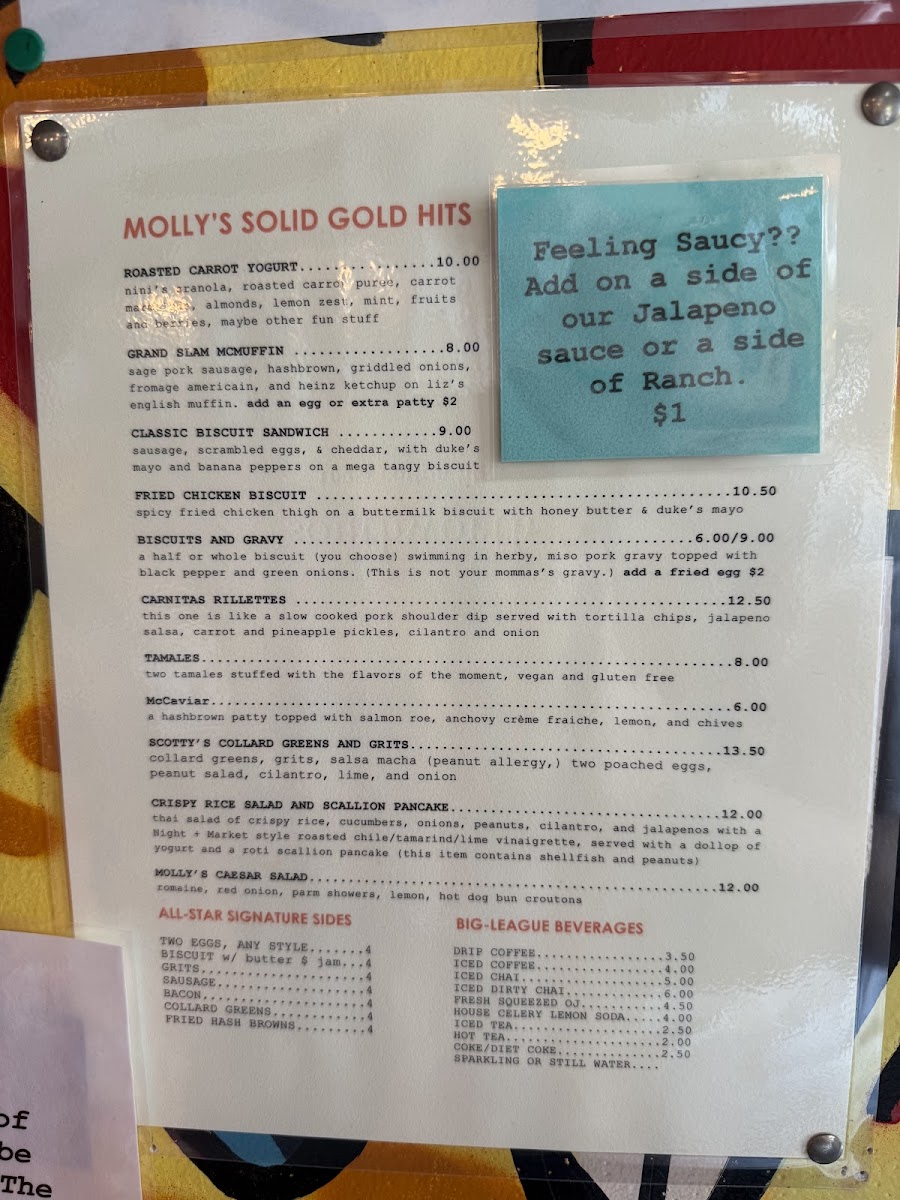 MOLLY'S SOLID GOLD HITS
ROASTED CARROT YOGURT................10.00
nini's granola, roasted carrot puree, carrot
almonds, lemon zest, mint, fruits
and berries, maybe other fun stuff
GRAND SLAM MCMUFFIN ..................8.00
sage pork sausage, hashbrown, griddled onions,
fromage americain, and heinz ketchup on liz's
english muffin. add an egg or extra patty $2
CLASSIC BISCUIT SANDWICH ............9.00
sausage, scrambled eggs, & cheddar, with duke's
mayo and banana peppers on a mega tangy biscuit
Feeling Saucy??
Add on a side of
our Jalapeno
sauce or a side
of Ranch.
$1
FRIED CHICKEN BISCUIT ..................................................10.50
spicy fried chicken thigh on a buttermilk biscuit with honey butter & duke's mayo
BISCUITS AND GRAVY ................................................6.00/9.00
a half or whole biscuit (you choose) swimming in herby, miso pork gravy topped with
black pepper and green onions. (This is not your mommas's gravy.) add a fried egg $2
CARNITAS RILLETTES .....................................................12.50
this one is like a slow cooked pork shoulder dip served with tortilla chips, jalapeno
salsa, carrot and pineapple pickles, cilantro and onion
TAMALES.................................................................8.00
two tamales stuffed with the flavors of the moment, vegan and gluten free
McCaviar................................................................6.00
a hashbrown patty topped with salmon roe, anchovy crème fraiche, lemon, and chives
SCOTTY'S COLLARD GREENS AND GRITS......................................13.50
collard greens, grits, salsa macha (peanut allergy,) two poached eggs,
peanut salad, cilantro, lime, and onion
CRISPY RICE SALAD AND SCALLION PANCAKE.................................12.00
thai salad of crispy rice, cucumbers, onions, peanuts, cilantro, and jalapenos with a
Night + Market style roasted chile/tamarind/lime vinaigrette, served with a dollop of
yogurt and a roti scallion pancake (this item contains shellfish and peanuts)
MOLLY'S CAESAR SALAD...................................................12.00
romaine, red onion, parm showers, lemon, hot dog bun croutons
ALL-STAR SIGNATURE SIDES
TWO EGGS, ANY STYLE.......4
BISCUIT w/ butter $ jam...4
GRITS.....................4
SAUSAGE...................4
BACON.....................4
COLLARD GREENS............4
FRIED HASH BROWNS.........4
BIG-LEAGUE BEVERAGES
DRIP COFFEE................3.50
ICED COFFEE................4.00
ICED CHAI..................5.00
ICED DIRTY CHAI............6.00
FRESH SQUEEZED OJ..........4.50
HOUSE CELERY LEMON SODA.....4.00
ICED TEA...................2.50
HOT TEA....................2.00
COKE/DIET COKE.............2.50
SPARKLING OR STILL WATER....
of
be
The